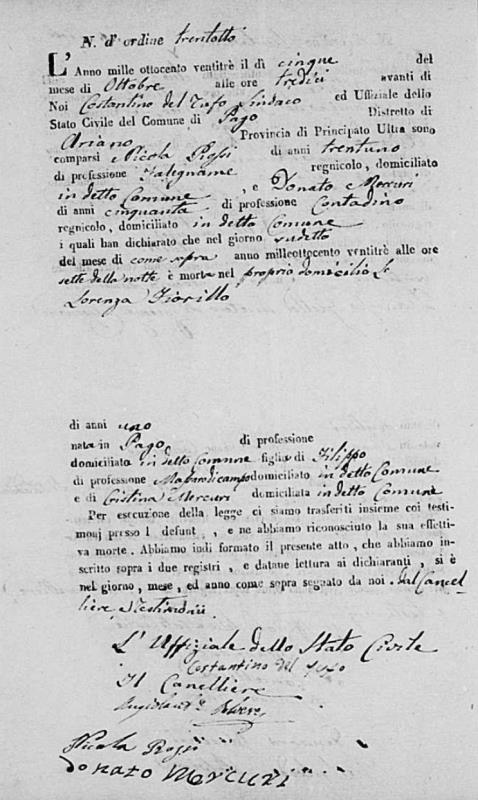 N. d' ordine trentotto
L' Anno mille ottocento ventitrè il dì cinque del
mese di Ottobre alle ore tredici avanti di
Noi Costantino del Tufo Sindaco ed Uffiziale dello
Stato Civile del Comune di Pago Distretto di
Ariano Provincia di Principato Ultra sono
comparsi Nicola Rossi di anni trentuno
di professione Falegname regnicolo, domiciliato
in detto Comune, e Donato Mercuri
di anni cinquanta di professione Contadino
regnicolo, domiciliato in detto Comune
i quali han dichiarato che nel giorno sudetto
del mese di come sopra anno milleottocento ventitrè alle ore
sette della notte è morta nel proprio domicilio
Lorenza Fiorillo
di anni uno
nata in Pago di professione
domiciliata in detto Comune figlia di Filippo
di professione domiciliato in detto Comune
e di Cristina Mercuri domiciliata in detto Comune
Per esecuzione della legge ci siamo trasferiti insieme coi testi-
monj presso l defunt , e ne abbiamo riconosciuto la sua effetti-
va morte. Abbiamo indi formato il presente atto, che abbiamo in-
scritto sopra i due registri, e datane lettura ai dichiaranti, si è
nel giorno, mese, ed anno come sopra segnato da noi, dal Cancel-
liere e Testimonii
L' Uffiziale dello Stato Civile
Costantino del Tufo
Il Canelliere
Nicola Rossi
Donato Mercuri